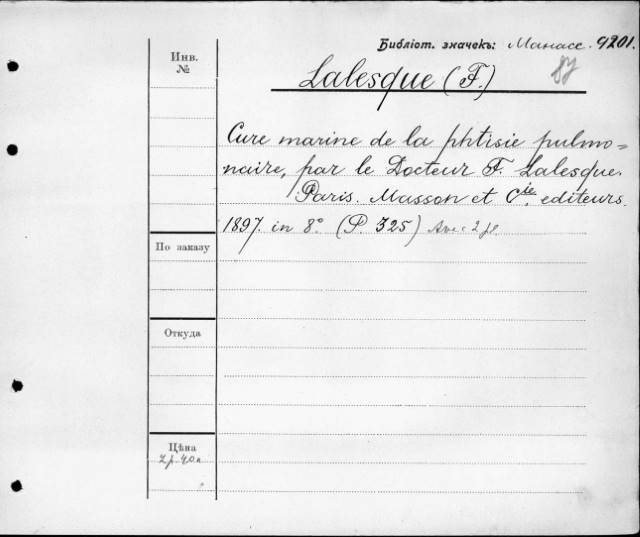 Библіот. значекъ: Манасс. 9201.
Инв.
№
Lalesque (F.)
Cure marine de la phtisie pulmo=
naire, par le Docteur F. Lalesque.
Paris. Masson et Cie. editeurs.
1897. in 8° (P. 325) Avec 2 pl.
По заказу
Откуда
Цѣна
2 р. 40 к